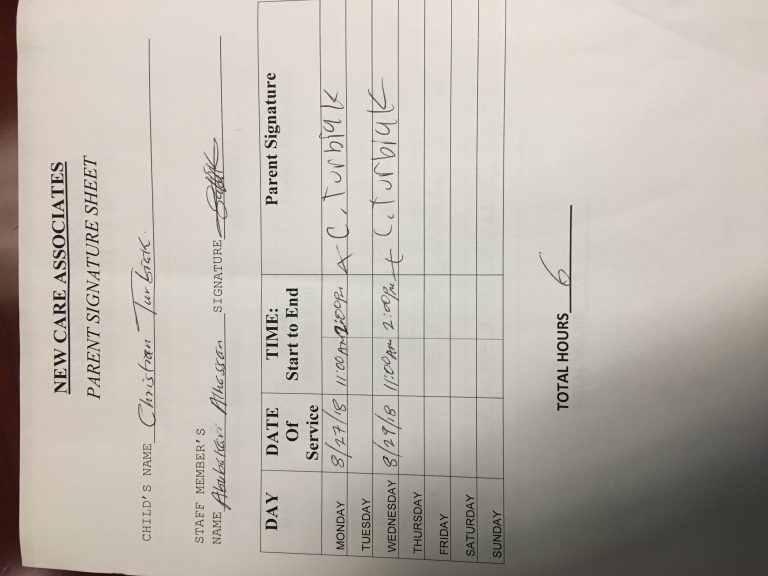 NEW CARE ASSOCIATES
PARENT SIGNATURE SHEET
CHILD'S NAME Christian Turbiak
STAFF MEMBER'S
NAME Abubakari Alhassan SIGNATURE
DAY DATE Of Service TIME: Start to End Parent Signature
MONDAY 8/27/18 11:00Am 2:00pm x C. Turbiak
TUESDAY
WEDNESDAY 8/29/18 11:00Am 2:00pm x C. Turbiak
THURSDAY
FRIDAY
SATURDAY
SUNDAY
TOTAL HOURS 6